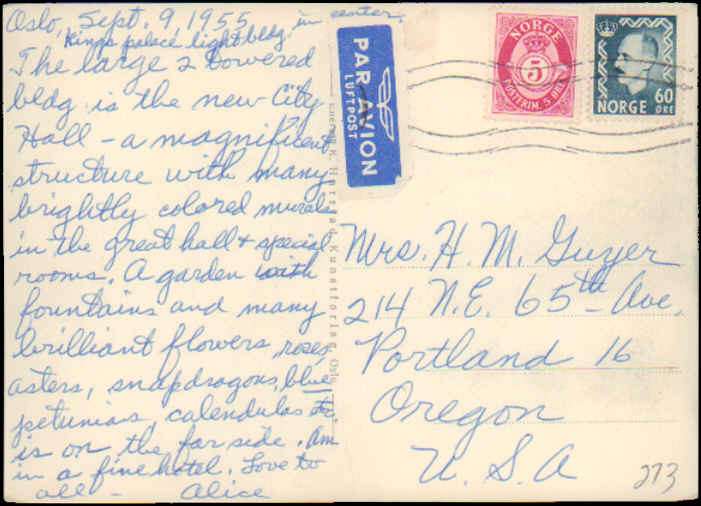 Oslo, Sept. 9 1955
King's palace light bldg. in center.
The large 2 towered
bldg is the new City
Hall - a magnificent
structure with many
brightly colored murals
in the great hall & special
rooms. A garden with
fountains and many
brilliant flowers, roses,
asters, snapdragons, blue
petunias, calendulas etc.
is on the far side. Am
in a fine hotel. Love to
all - Alice
PAR AVION
LUFTPOST
NORGE
5
POSTFRIM. 5 ØRE
NORGE 60
ØRE
Mrs. H. M. Guyer
214 N.E. 65th Ave.
Portland 16
Oregon
U.S.A
273
Kunstforlag, Oslo